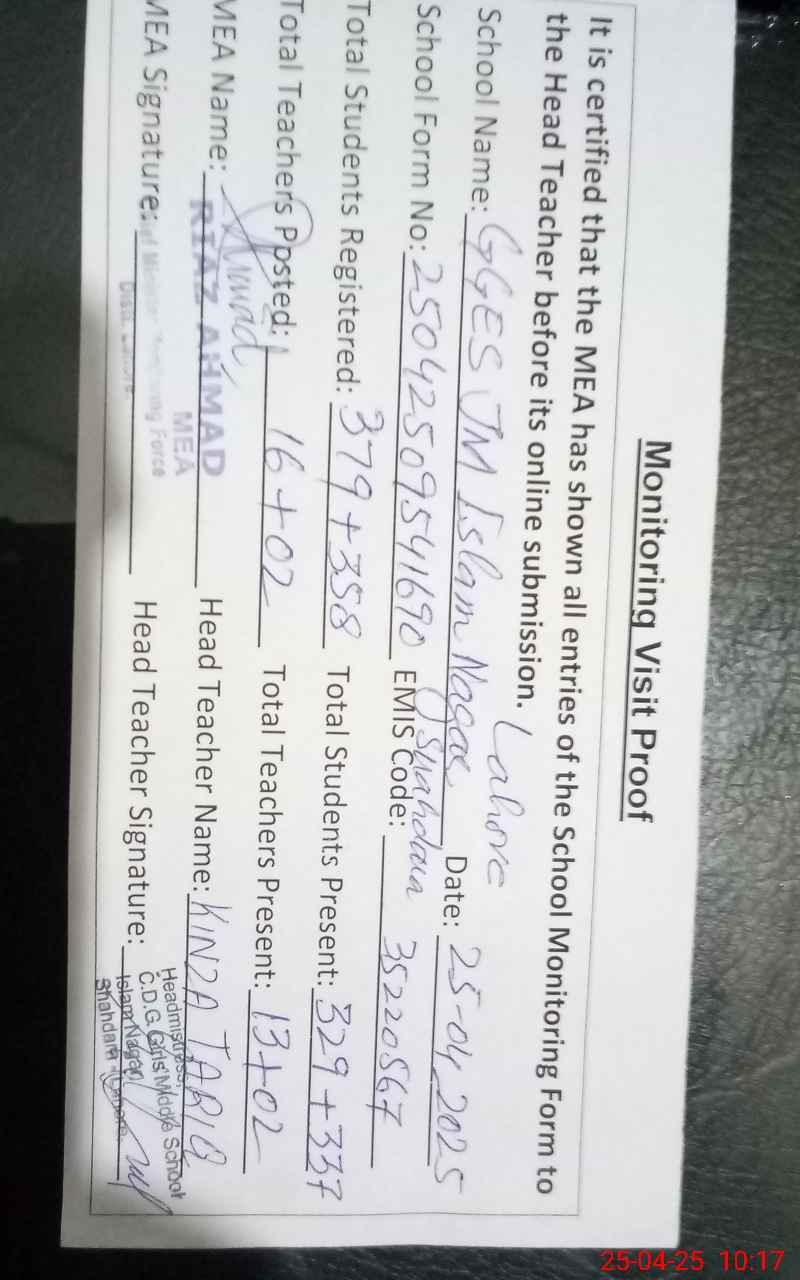 Monitoring Visit Proof
It is certified that the MEA has shown all entries of the School Monitoring Form to
the Head Teacher before its online submission.
School Name: GGES JM Islam Nagar Shahdara Lahore Date: 25-04-2025
School Form No: 25042509541690 EMIS Code: 35220567
Total Students Registered: 379+358 Total Students Present: 329+337
Total Teachers Posted: 16+02 Total Teachers Present: 13+02
MEA Name: RIAZ AHMAD Head Teacher Name: KINZA TARIQ
MEA
MEA Signature: Head Teacher Signature:
Monitoring Force
Distt. Lahore
Headmistress,
C.D.G. Girls Middle School
Islam Nagar
Shahdara Lahore
25-04-25 10:17